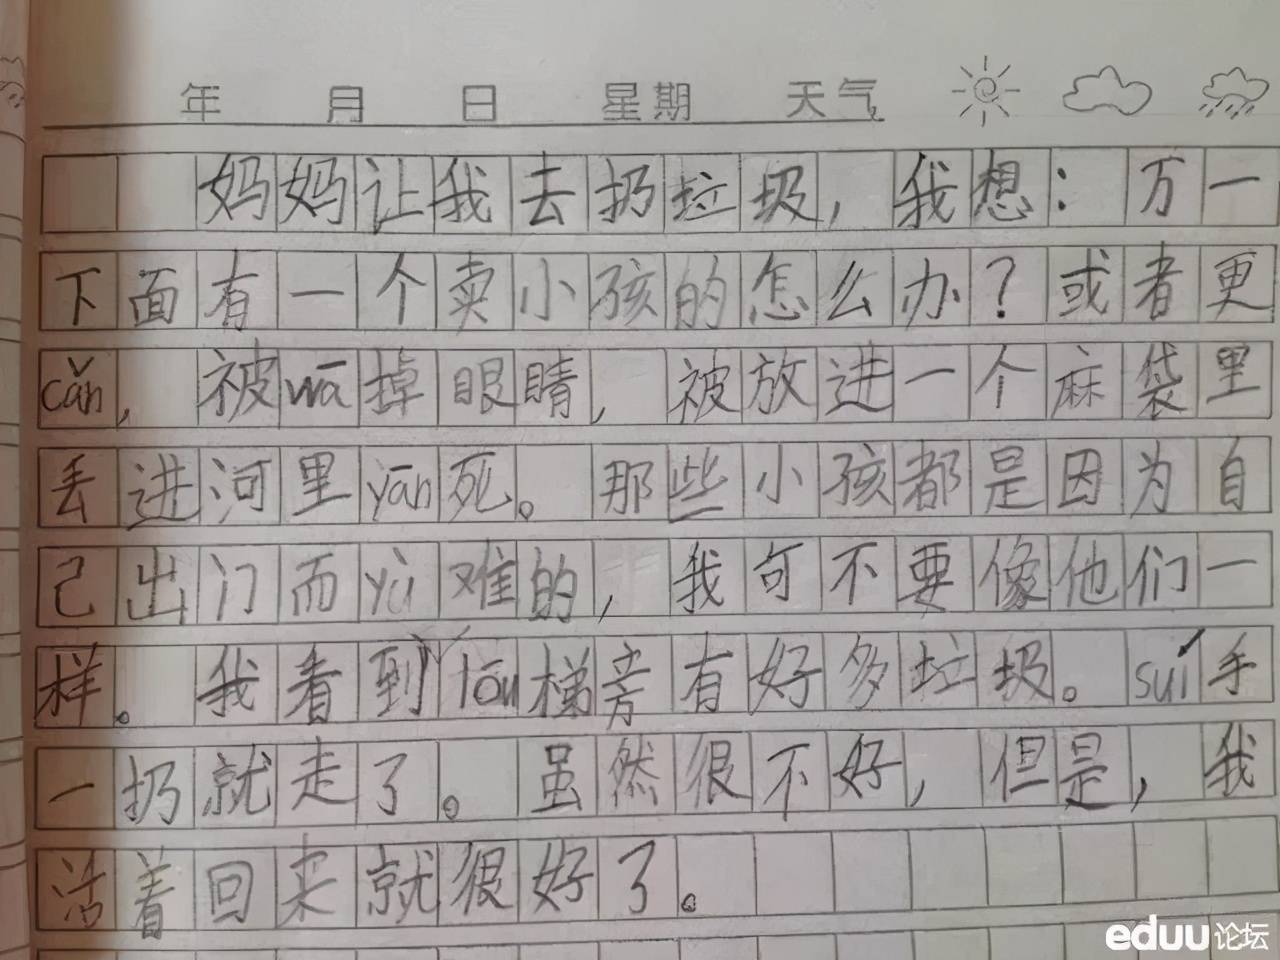 年 月 日 星期 天气
妈妈让我去扔垃圾，我想：万一
下面有一个卖小孩的怎么办？或者更
cǎn，被wā掉眼睛，被放进一个麻袋里
丢进河里yān死。那些小孩都是因为自
己出门而yù难的，我可不要像他们一
样。我看到lóu梯旁有好多垃圾。suí手
一扔就走了。虽然很不好，但是，我
活着回来就很好了。
eduu论坛